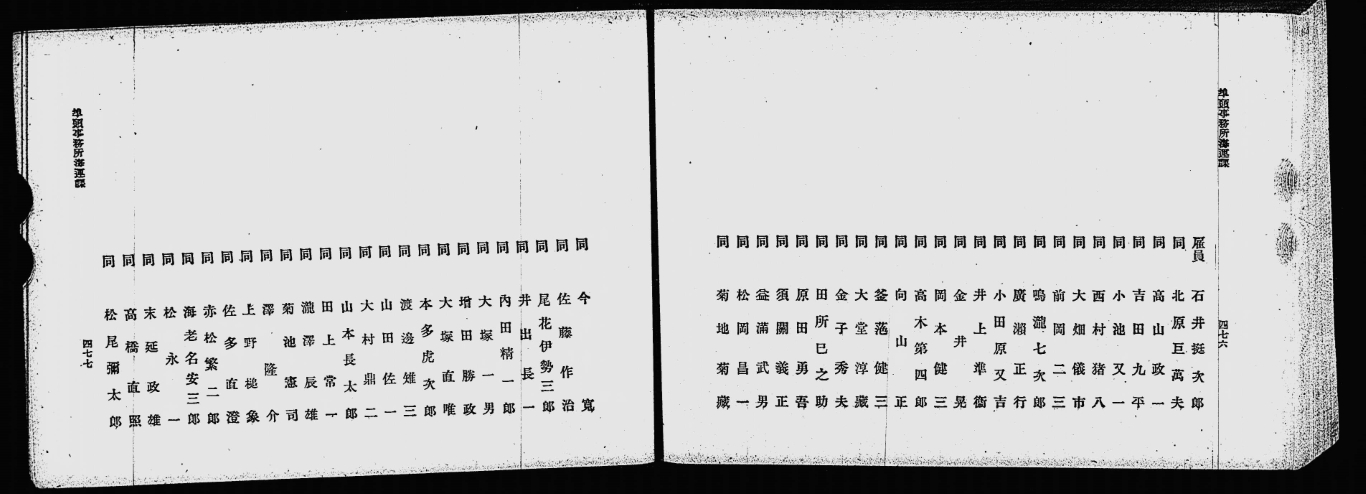 埠頭事務所海運課
四七六
雇員 石井挺次郎
同 北原巨萬夫
同 高山政一
同 吉田九平
同 小池又一
同 西村猪八
同 大畑儀市
同 前岡二三
同 鳴瀧七次郎
同 廣瀬正行
同 小田原又吉
同 井上準衞
同 金井晃
同 岡本健三
同 高木第四郎
同 向山正
同 釜萢健三
同 大堂淳藏
同 金子秀夫
同 田所巳之助
同 原田勇吾
同 須關義正
同 益滿武男
同 松岡昌一
同 菊地菊藏
埠頭事務所海運課
四七七
同 今寬
同 佐藤作治
同 尾花伊勢三郎
同 井出長一
同 內田精一郎
同 大塚一男
同 增田勝政
同 大塚直唯
同 本多虎次郎
同 渡邊雉三
同 山田佐一
同 大村鼎二
同 山本長太郎
同 田上常一
同 瀧澤辰雄
同 菊池憲司
同 澤隆介
同 上野槌象
同 佐多直澄
同 赤松繁二郎
同 海老名安三郎
同 松永一
同 末延政雄
同 高橋直照
同 松尾彌太郎